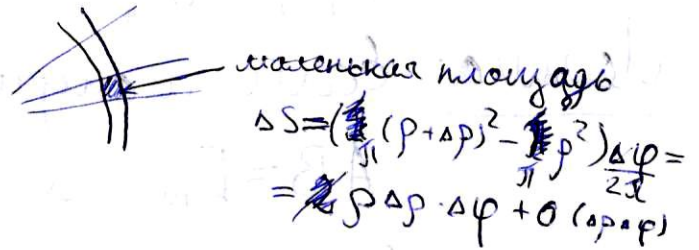 маленькая площадь
ΔS=(π(ρ+Δρ)²-πρ²)Δφ/2π=
=ρΔρ·Δφ+o(ΔρΔφ)